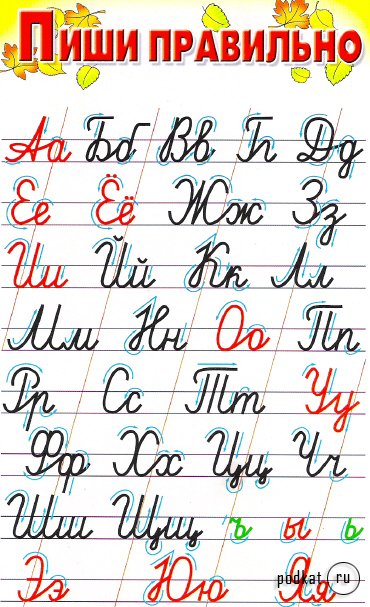 ПИШИ ПРАВИЛЬНО
Аа Бб Вв Гг Дд
Ее Ёё Жж Зз
Ии Йй Кк Лл
Мм Нн Оо Пп
Рр Сс Тт Уу
Фф Хх Цц Чч
Шш Щщ ъ ы ь
Ээ Юю Яя
podkat ru